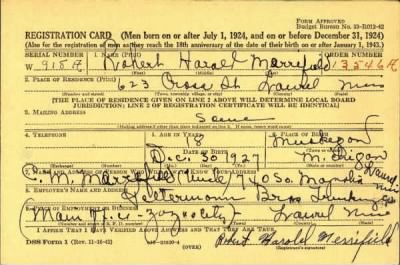 FORM APPROVED
Budget Bureau No. 33-R012-42
REGISTRATION CARD (Men born on or after July 1, 1924, and on or before December 31, 1924)
(Also for the registration of men as they reach the 18th anniversary of the date of their birth on or after January 1, 1943.)
SERIAL NUMBER 1. NAME (Print) ORDER NUMBER
W 918 A Robert Harold Merrifield 13546A
(First) (Middle) (Last)
2. PLACE OF RESIDENCE (Print)
623 Cross St Laurel Miss
(Number and street) (Town, township, village, or city) (County) (State)
[THE PLACE OF RESIDENCE GIVEN ON LINE 2 ABOVE WILL DETERMINE LOCAL BOARD
JURISDICTION; LINE 2 OF REGISTRATION CERTIFICATE WILL BE IDENTICAL]
3. MAILING ADDRESS
Same
(Mailing address if other than place indicated on line 2. If same, insert word same)
4. TELEPHONE 5. AGE IN YEARS 6. PLACE OF BIRTH
18 Muskegon
DATE OF BIRTH
Dec. 30 1927 Michigan
(Exchange) (Number) (Mo.) (Day) (Yr.) (State or country)
C. M. Merrifield (Uncle) 740 So. Magnolia Laurel Miss
8. EMPLOYER'S NAME AND ADDRESS
Bros
9. PLACE OF EMPLOYMENT OR BUSINESS
Main Laurel Miss
I AFFIRM THAT I HAVE VERIFIED ABOVE ANSWERS AND THAT THEY ARE TRUE.
DSS Form 1 (Rev. 11-16-42) (OVER) Robert Harold Merrifield